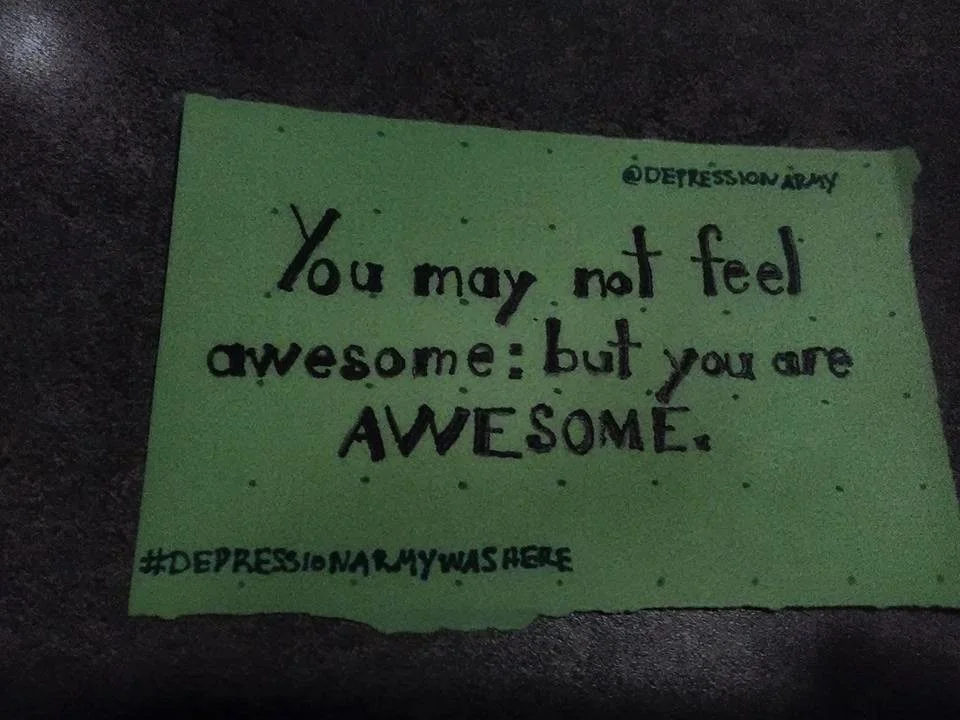 @DEPRESSIONARMY
You may not feel
awesome: but you are
AWESOME.
#DEPRESSIONARMYWASHERE